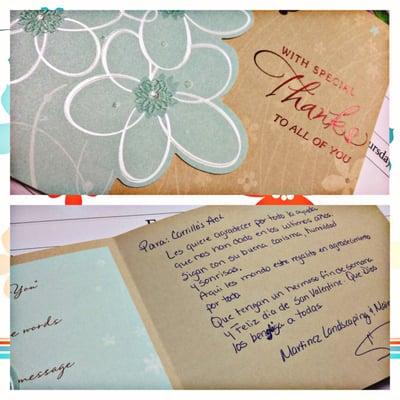 WITH SPECIAL
Thanks
TO ALL OF YOU
ursday
You"
e words
message
Para: Carrillo's Act
Les quiere agradecer por toda la ayuda
que nos han dado en los ultimos años.
Sigan con su buena carisma, humildad
y sonrisas.
Aqui les mando este regalito en agradecimiento
por todo.
Que tengan un hermoso fin de semana
y Feliz dia de San Valentine. Que Dios
los bendiga a todos
Martinez Landscaping &